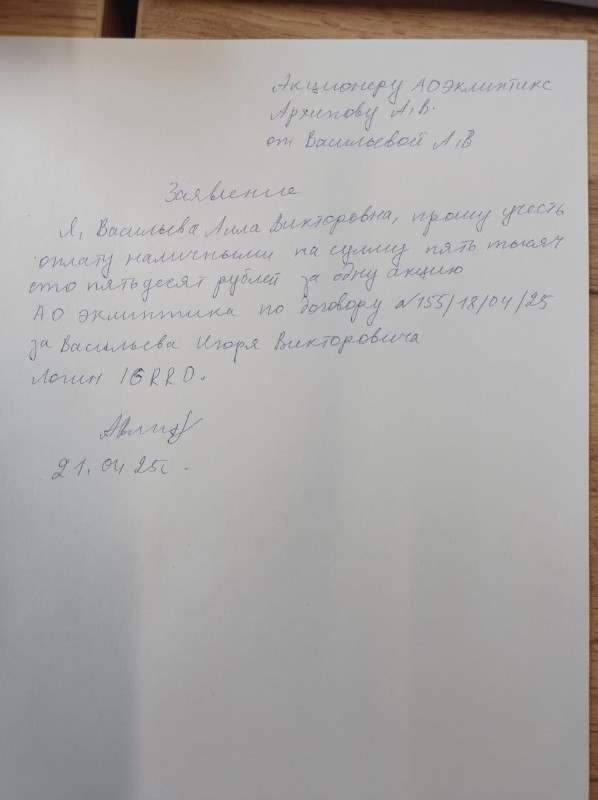 Акционеру АО Эклиптикс
Архипову А.В.
от Васильевой А.В
Заявление
Я, Васильева Алла Викторовна, прошу учесть
оплату наличными на сумму пять тысяч
сто пятьдесят рублей за одну акцию
АО Эклиптика по договору №155/18/04/25
за Васильева Игоря Викторовича
Логин IGRRO.
21.04 25г.